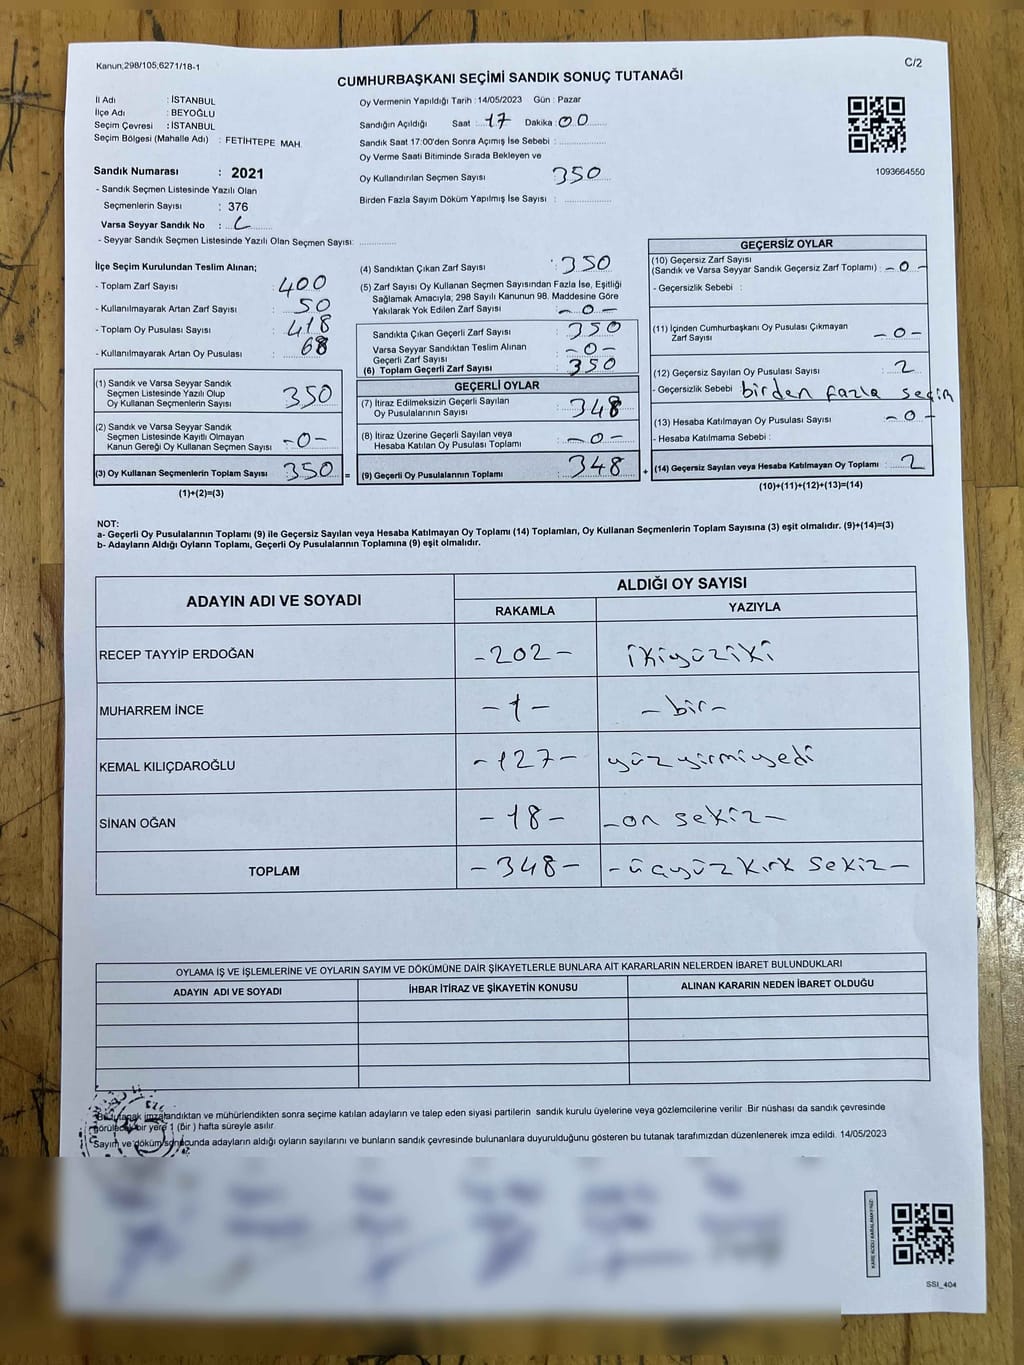 Kanun;298/105;6271/18-1
C/2
CUMHURBAŞKANI SEÇİMİ SANDIK SONUÇ TUTANAĞI
İl Adı : İSTANBUL
İlçe Adı : BEYOĞLU
Seçim Çevresi : İSTANBUL
Seçim Bölgesi (Mahalle Adı) : FETİHTEPE MAH.
Sandık Numarası : 2021
- Sandık Seçmen Listesinde Yazılı Olan
Seçmenlerin Sayısı : 376
Varsa Seyyar Sandık No :
- Seyyar Sandık Seçmen Listesinde Yazılı Olan Seçmen Sayısı: ............
Oy Vermenin Yapıldığı Tarih :14/05/2023 Gün : Pazar
Sandığın Açıldığı Saat : 17 Dakika : 00
Sandık Saat 17:00'den Sonra Açımış İse Sebebi : ............
Oy Verme Saati Bitiminde Sırada Bekleyen ve
Oy Kullandırılan Seçmen Sayısı : 350
Birden Fazla Sayım Döküm Yapılmış İse Sayısı : ............
1093664550
İlçe Seçim Kurulundan Teslim Alınan;
- Toplam Zarf Sayısı : 400
- Kullanılmayarak Artan Zarf Sayısı : 50
- Toplam Oy Pusulası Sayısı : 418
- Kullanılmayarak Artan Oy Pusulası : 68
(1) Sandık ve Varsa Seyyar Sandık
Seçmen Listesinde Yazılı Olup
Oy Kullanan Seçmenlerin Sayısı : 350
(2) Sandık ve Varsa Seyyar Sandık
Seçmen Listesinde Kayıtlı Olmayan
Kanun Gereği Oy Kullanan Seçmen Sayısı : -0-
(3) Oy Kullanan Seçmenlerin Toplam Sayısı : 350
(1)+(2)=(3)
=
(4) Sandıktan Çıkan Zarf Sayısı : 350
(5) Zarf Sayısı Oy Kullanan Seçmen Sayısından Fazla İse, Eşitliği
Sağlamak Amacıyla, 298 Sayılı Kanunun 98. Maddesine Göre
Yakılarak Yok Edilen Zarf Sayısı : -0-
Sandıkta Çıkan Geçerli Zarf Sayısı : 350
Varsa Seyyar Sandıktan Teslim Alınan
Geçerli Zarf Sayısı : -0-
(6) Toplam Geçerli Zarf Sayısı : 350
GEÇERLİ OYLAR
(7) İtiraz Edilmeksizin Geçerli Sayılan
Oy Pusulalarının Sayısı : 348
(8) İtiraz Üzerine Geçerli Sayılan veya
Hesaba Katılan Oy Pusulası Toplamı : -0-
(9) Geçerli Oy Pusulalarının Toplamı : 348
+
GEÇERSİZ OYLAR
(10) Geçersiz Zarf Sayısı
(Sandık ve Varsa Seyyar Sandık Geçersiz Zarf Toplamı) : -0-
- Geçersizlik Sebebi :
(11) İçinden Cumhurbaşkanı Oy Pusulası Çıkmayan
Zarf Sayısı : -0-
(12) Geçersiz Sayılan Oy Pusulası Sayısı : 2
- Geçersizlik Sebebi : birden fazla seçim
(13) Hesaba Katılmayan Oy Pusulası Sayısı : -0-
- Hesaba Katılmama Sebebi :
(14) Geçersiz Sayılan veya Hesaba Katılmayan Oy Toplamı : 2
(10)+(11)+(12)+(13)=(14)
NOT:
a- Geçerli Oy Pusulalarının Toplamı (9) ile Geçersiz Sayılan veya Hesaba Katılmayan Oy Toplamı (14) Toplamları, Oy Kullanan Seçmenlerin Toplam Sayısına (3) eşit olmalıdır. (9)+(14)=(3)
b- Adayların Aldığı Oyların Toplamı, Geçerli Oy Pusulalarının Toplamına (9) eşit olmalıdır.
ADAYIN ADI VE SOYADI
ALDIĞI OY SAYISI
RAKAMLA YAZIYLA
RECEP TAYYİP ERDOĞAN -202- ikiyüziki
MUHARREM İNCE -1- -bir-
KEMAL KILIÇDAROĞLU -127- yüzyirmiyedi
SİNAN OĞAN -18- -on sekiz-
TOPLAM -348- -üçyüzkırk sekiz-
OYLAMA İŞ VE İŞLEMLERİNE VE OYLARIN SAYIM VE DÖKÜMÜNE DAİR ŞİKAYETLERLE BUNLARA AİT KARARLARIN NELERDEN İBARET BULUNDUKLARI
ADAYIN ADI VE SOYADI İHBAR İTİRAZ VE ŞİKAYETİN KONUSU ALINAN KARARIN NEDEN İBARET OLDUĞU
Bu tutanak imzalandıktan ve mühürlendikten sonra seçime katılan adayların ve talep eden siyasi partilerin sandık kurulu üyelerine veya gözlemcilerine verilir .Bir nüshası da sandık çevresinde
görülecek bir yere 1 (bir ) hafta süreyle asılır.
Sayım ve döküm sonucunda adayların aldığı oyların sayılarını ve bunların sandık çevresinde bulunanlara duyurulduğunu gösteren bu tutanak tarafımızdan düzenlenerek imza edildi. 14/05/2023
SSI_404